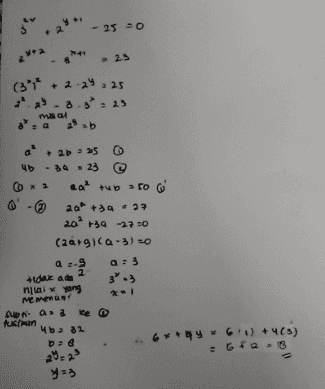 3^2x + 2^y+1 - 25 = 0
2^y+2 - 3^x+1 = 23
(3^x)^2 + 2 . 2^y = 25
2^2 . 2^y - 3 . 3^x = 23
misal
3^x = a 2^y = b
a^2 + 2b = 25 ①
4b - 3a = 23 ②
① x 2 2a^2 + 4b = 50 ①'
①' - ② 2a^2 + 3a = 27
2a^2 + 3a - 27 = 0
(2a+9)(a-3) = 0
a = -9/2 a = 3
tidak ada 3^x = 3
nilai x yang x = 1
memenuhi
Subti-tusikan a = 3 ke ②
4b = 32
b = 8
2^y = 2^3
y = 3
6x + 4y = 6(1) + 4(3)
= 6 + 12 = 18